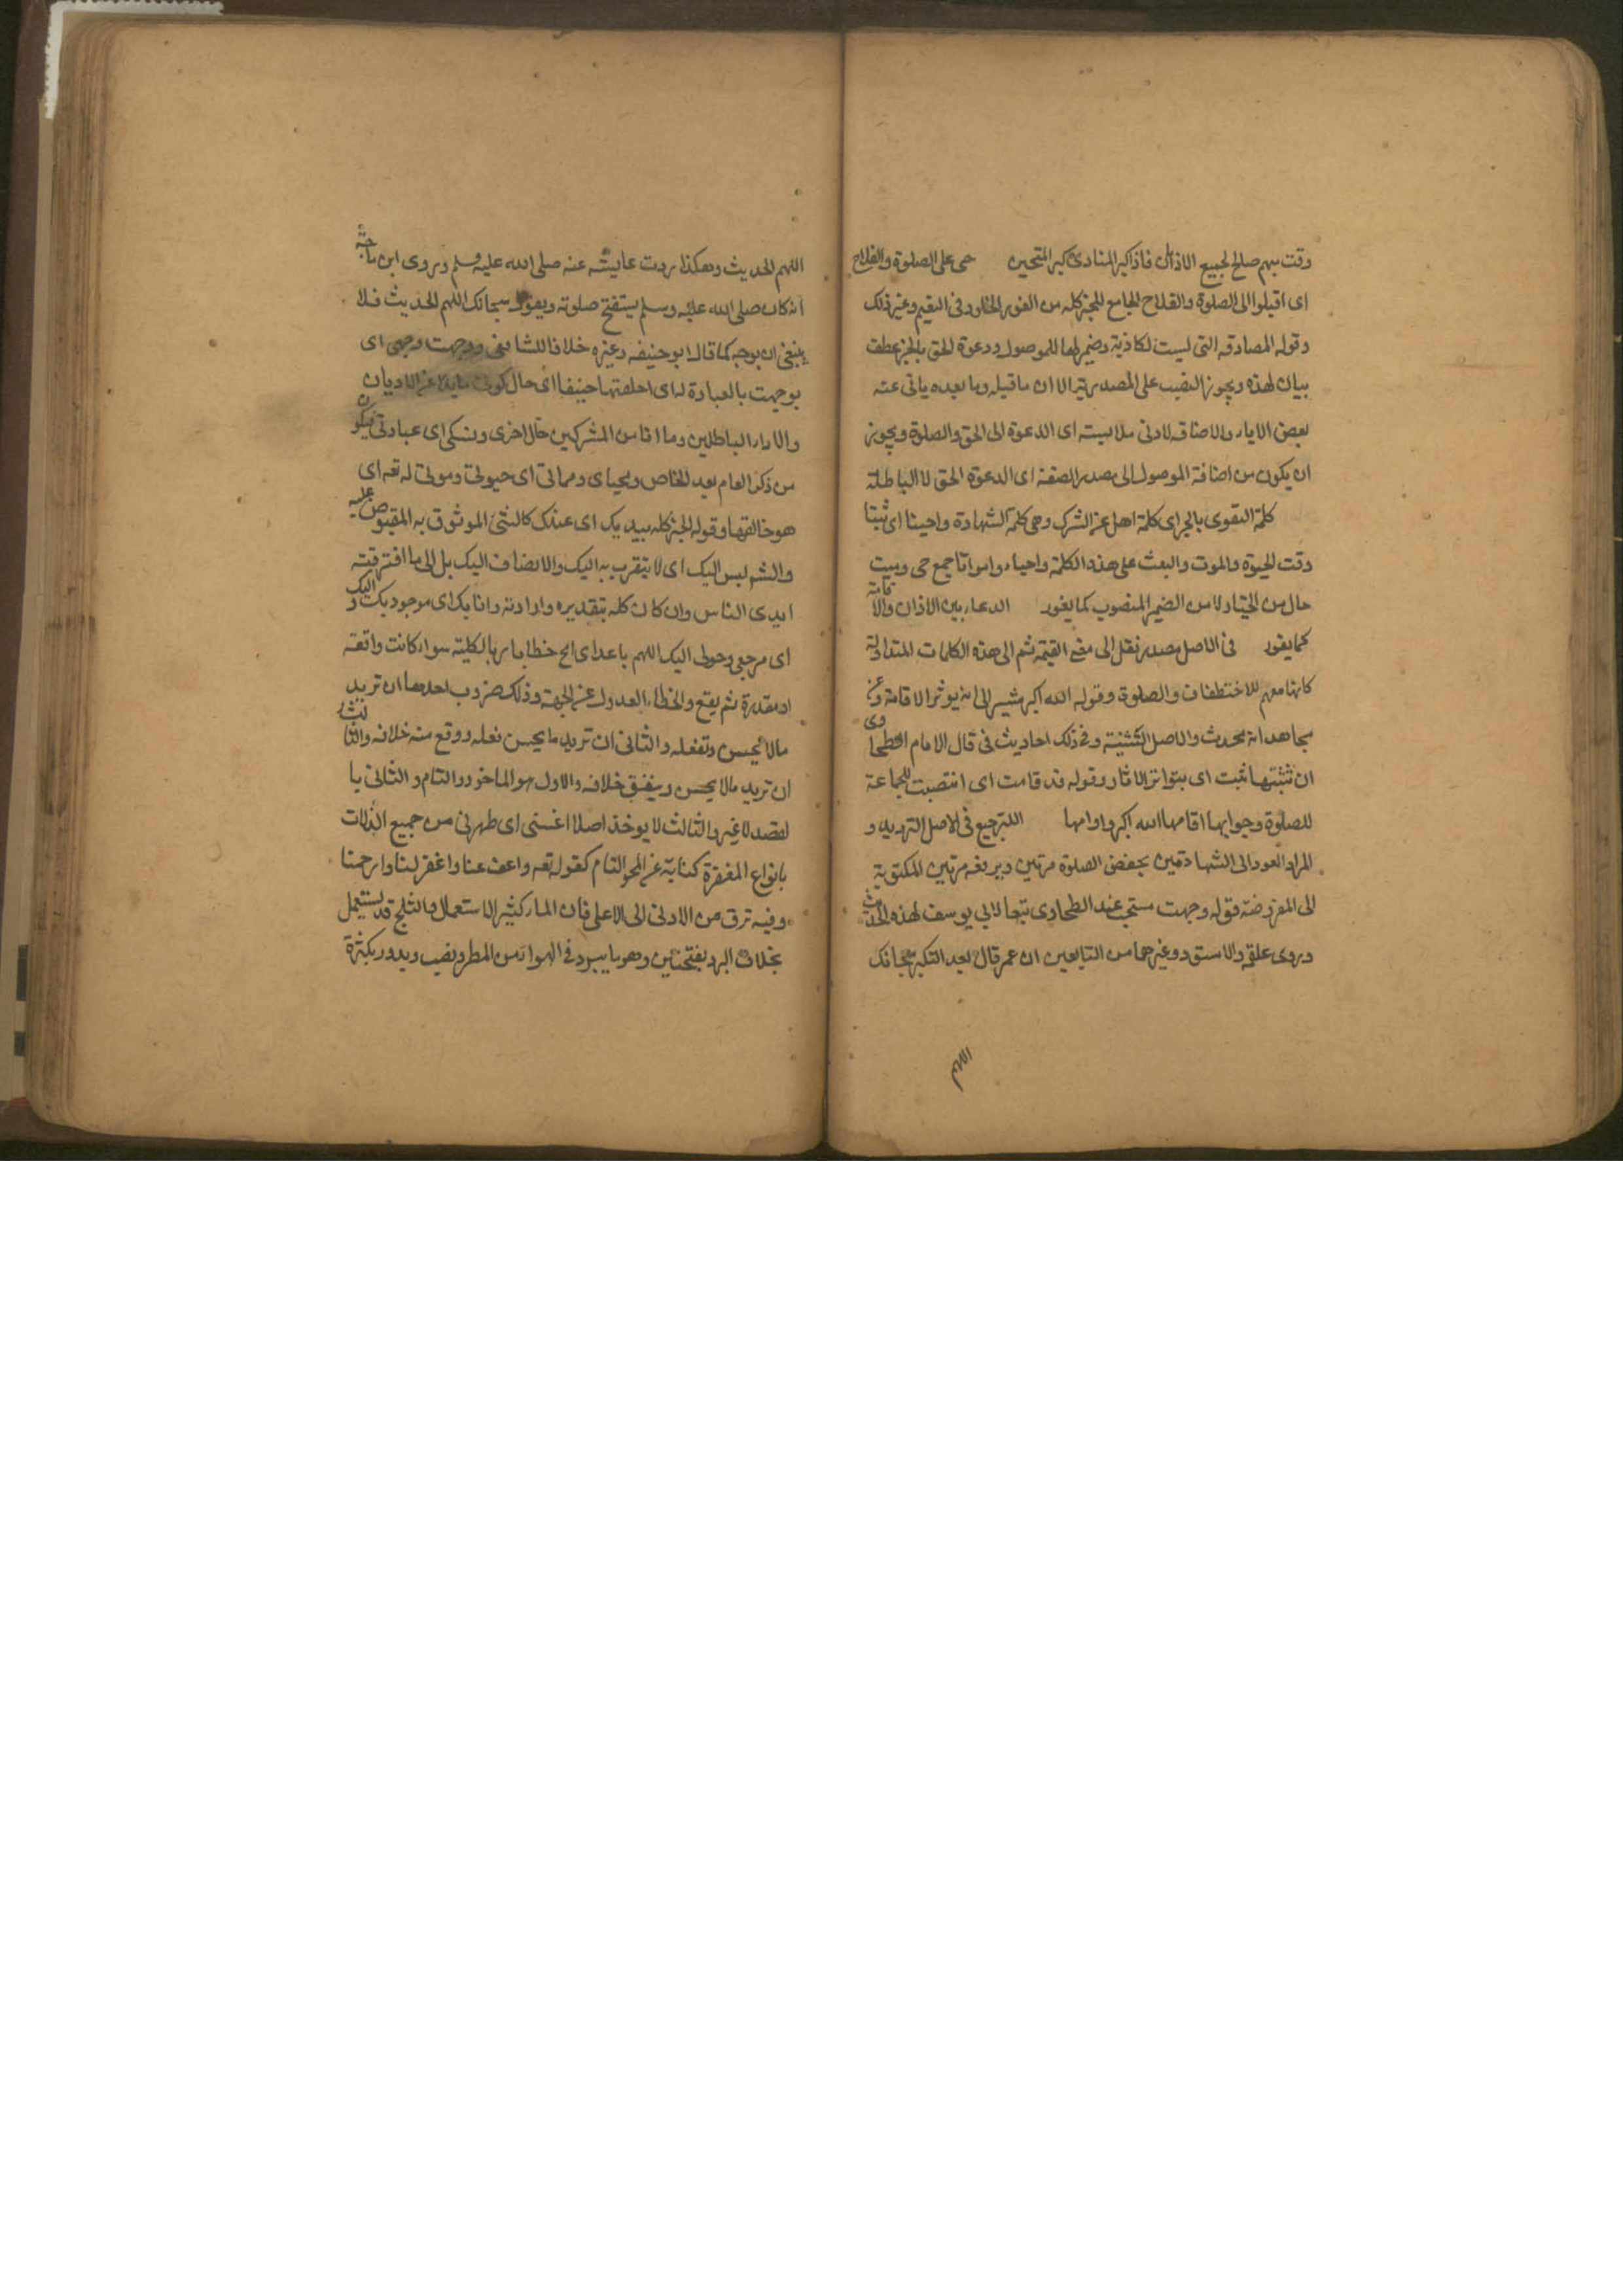 وقت مبهم صالح لجميع الاذان فاذا كبر المنادى كبر المتحين حى على الصلوة والفلاح
اى اقبلوا الى الصلوة والفلاح الجامع للخير كله من الفوز الخلود فى النعيم وغير ذلك
وقوله الصادقه التى ليست بكاذبة وضمير لها للموصول ودعوة الحق بالجر عطف
بيان لهذه ويجوز النصب على المصدرية الا ان ما قبله وما بعده ياتى عنه
بعض الاباء والاضافه لادنى ملابسته اى الدعوة الى الحق والصلوة ويجوز
ان يكون من اضافة الموصوف الى مصدر الصفة اى الدعوة الحق لا الباطلة
كلمة التقوى بالجر اى كلمة اهل عن الشرك وهى كلمة الشهادة واحينا اى ثبتنا
وقت الحيوة والموت والبعث على هذه الكلمة واحياء وامواتا جمع حى وميت
حال من الضمير المنصوب كما يفور الدعاء بين الاذان والاقامة
كما يفور فى الاصل مصدر نقل الى معنى القيمة ثم الى هذه الكلمات المتداولة
والصلوة وقوله الله اكبر مشير الى انه يوثر الاقامة وعن
مجاهد انه محدث والاصل التثنية وفى ذلك احاديث قال الامام الطحاوى
ان تثنيتها ثبت اى بتواتر الاثار وقوله قد قامت اى انتصبت للجماعة
للصلوة وجوابها اقامها الله اكبر وادامها الترجيع فى الاصل الترديد و
المراد العود الى الشهادتين بخفض الصلوة مرتين وبرفعه مرتين المكتوبة
الى المفروضة قوله وجهت مستحب عند الطحاوى تبعا لابى يوسف لهذه الحديث
وروى علقمه والاسود وغيرهما من التابعين ان عمر قال بعد التكبير سبحانك
اللهم
اللهم الحديث وهكذا روت عايشه عنه صلى الله عليه وسلم وروى ابن ماجة
انه كان صلى الله عليه وسلم يستفتح صلوته ويقول سبحانك اللهم الحديث فلا
ينبغى ان يوجه كما قال ابو حنيفه وغيره خلافا للشافعى ووجهت وجهى اى
توجهت بالعبادة له اى اخلصتها حنيفا اى حال كونى مايلا عن الاديان
والاراء الباطلين وما انا من المشركين حال اخرى ونسكى اى عبادتى فيكون
من ذكر العام بعد الخاص ومحياى ومماتى اى حيوتى وموتى له تعه اى
هو خالقها وقوله الخير كله بيديك اى عندك كالشئ الموثوق به المقبوض عليه
والشر ليس اليك اى لا يتقرب به اليك والا يضاف اليك بل الى ما اقترفته
ايدى الناس وان كان كله بتقديره وارادته وانا بك اى موجود بك واليك
اى مرجعى وحولى اليك اللهم باعد اى امح خطايا بالكلية سواء كانت واقعة
او مقدرة ثم يقع والخطاء العدول عن الجهة وذلك ضروب احدها ان تريد
مالا يحسن وتفعله والثانى ان تريد ما يحسن فعله ووقع منه خلافه والثالث
ان تريد مالا يحسن ويتفق خلافه والاول هو الماخوذ والتام والثانى با
لقصد لا غير والثالث لا يوخذ اصلا اغسلنى اى طهرنى من جميع الذلات
بانواع المغفرة كناية عن المحو التام كقوله تعه واعف عنا واغفر لنا وارحمنا
وفيه ترق من الادنى الى الاعلى فان الماء كثير الاستعمال والثلج قد يستعمل
بخلاف البرد بفتحتين وهو ما يبرد فى الهواء من المطر ويدور بكثرة